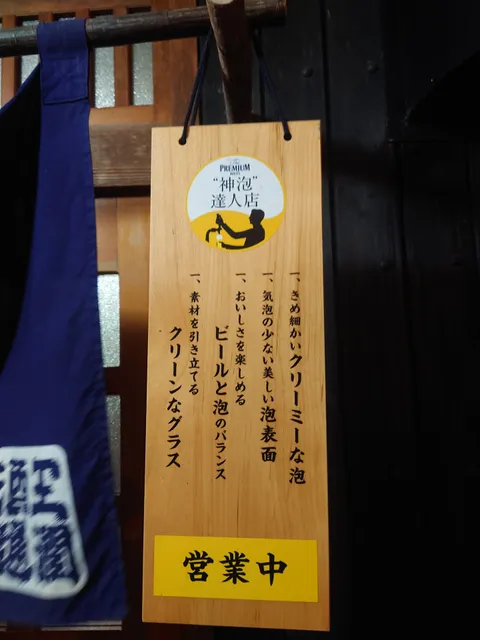 PREMIUM
"神泡"
達人店
一、きめ細かいクリーミーな泡
一、気泡の少ない美しい泡表面
一、おいしさを楽しめる
ビールと泡のバランス
一、素材を引き立てる
クリーンなグラス
営業中